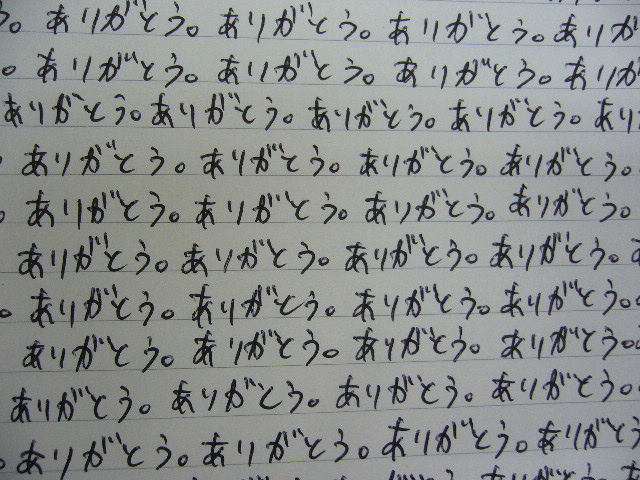 う。ありがとう。ありがとう。ありがとう。ありが
。ありがとう。ありがとう。ありがとう。ありが
ありがとう。ありがとう。ありがとう。ありがとう。あり
ありがとう。ありがとう。ありがとう。ありがとう。
。ありがとう。ありがとう。ありがとう。ありがとう。
ありがとう。ありがとう。ありがとう。ありがとう。
。ありがとう。ありがとう。ありがとう。ありがとう。
ありがとう。ありがとう。ありがとう。ありがとう。
ありがとう。ありがとう。ありがとう。ありがとう。
。ありがとう。ありがとう。ありがとう。ありがとう